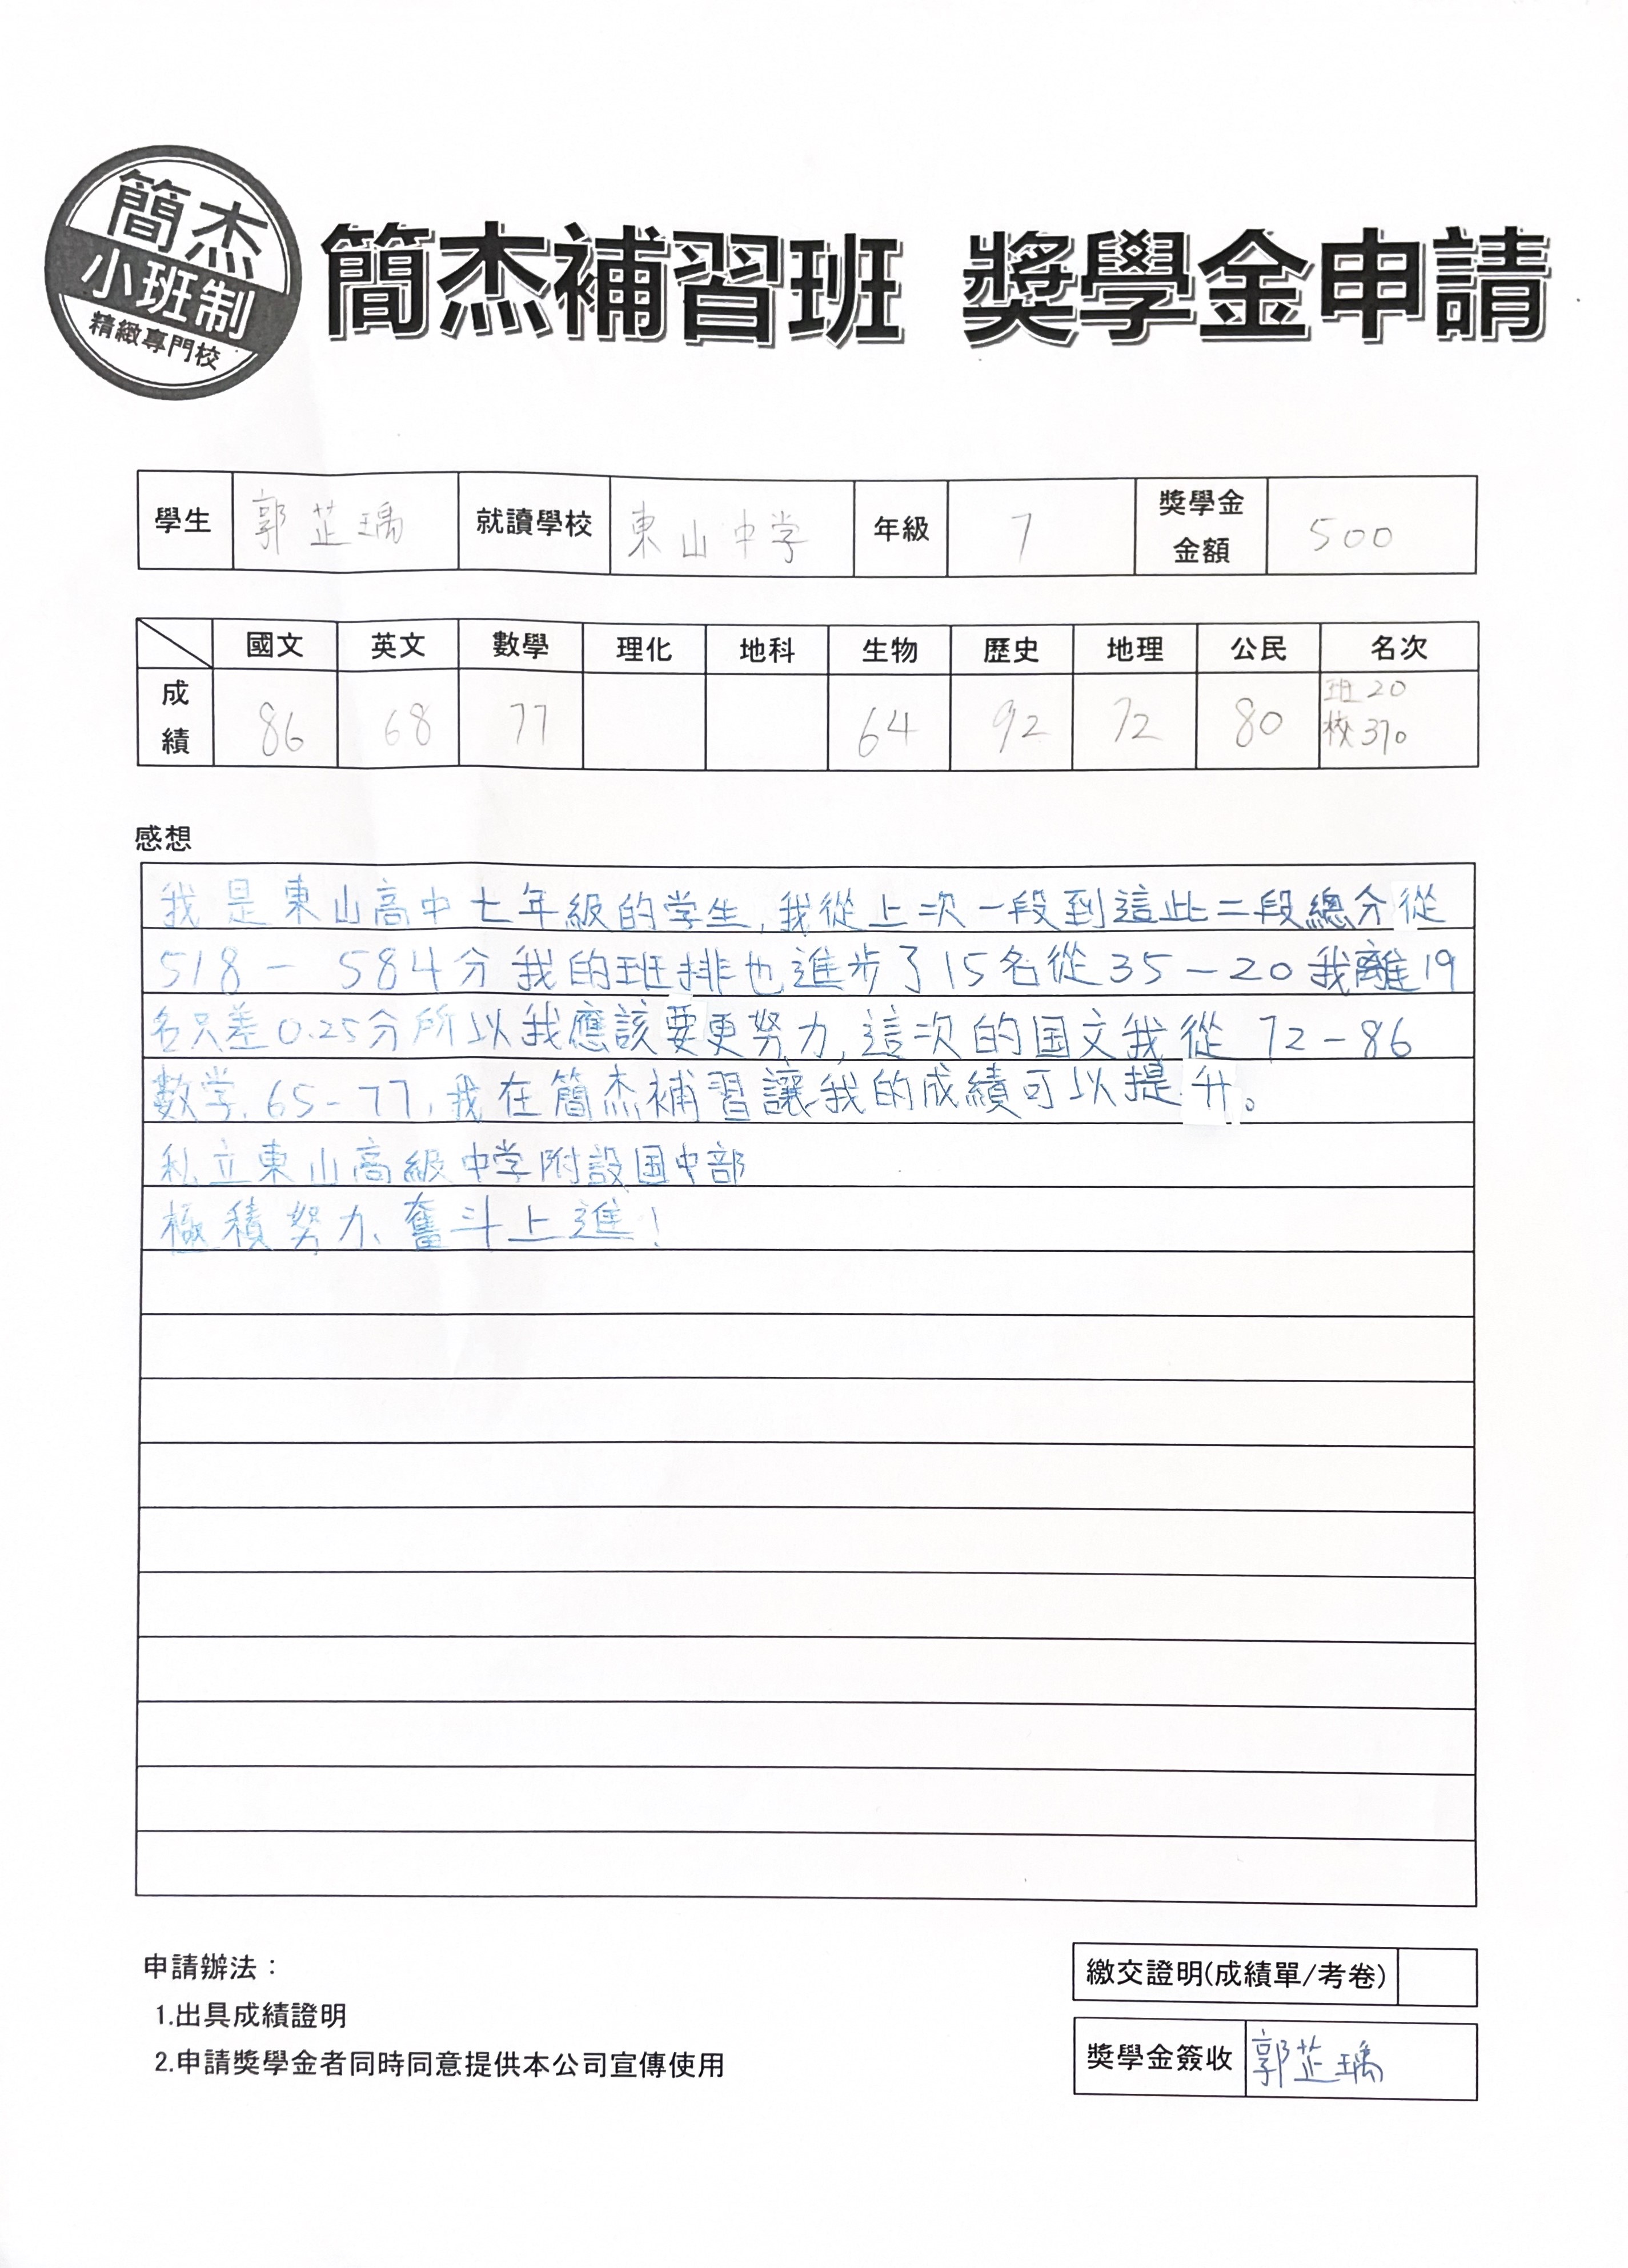 簡杰
小班制
精緻專門校
簡杰補習班 獎學金申請
學生 郭芷瑀 就讀學校 東山中学 年級 7 獎學金金額 500
國文 英文 數學 理化 地科 生物 歷史 地理 公民 名次
成績 86 68 77 64 92 72 80 班20 校370
感想
我是東山高中七年級的学生,我從上次一段到這此二段總分從
518－584分我的班排也進步了15名從35－20我離19
名只差0.25分所以我應該要更努力,這次的国文我從 72－86
數学,65-77,我在簡杰補習讓我的成績可以提升。
私立東山高級中学附設国中部
極積努力、奮斗上進!
申請辦法：
1.出具成績證明
2.申請獎學金者同時同意提供本公司宣傳使用
繳交證明(成績單/考卷)
獎學金簽收 郭芷瑀